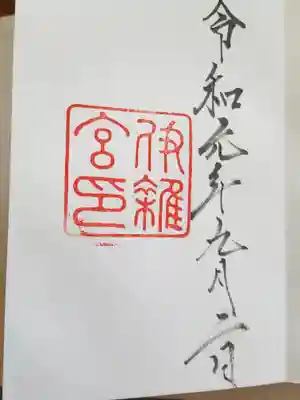 令和元年九月二日
伊雜宮印